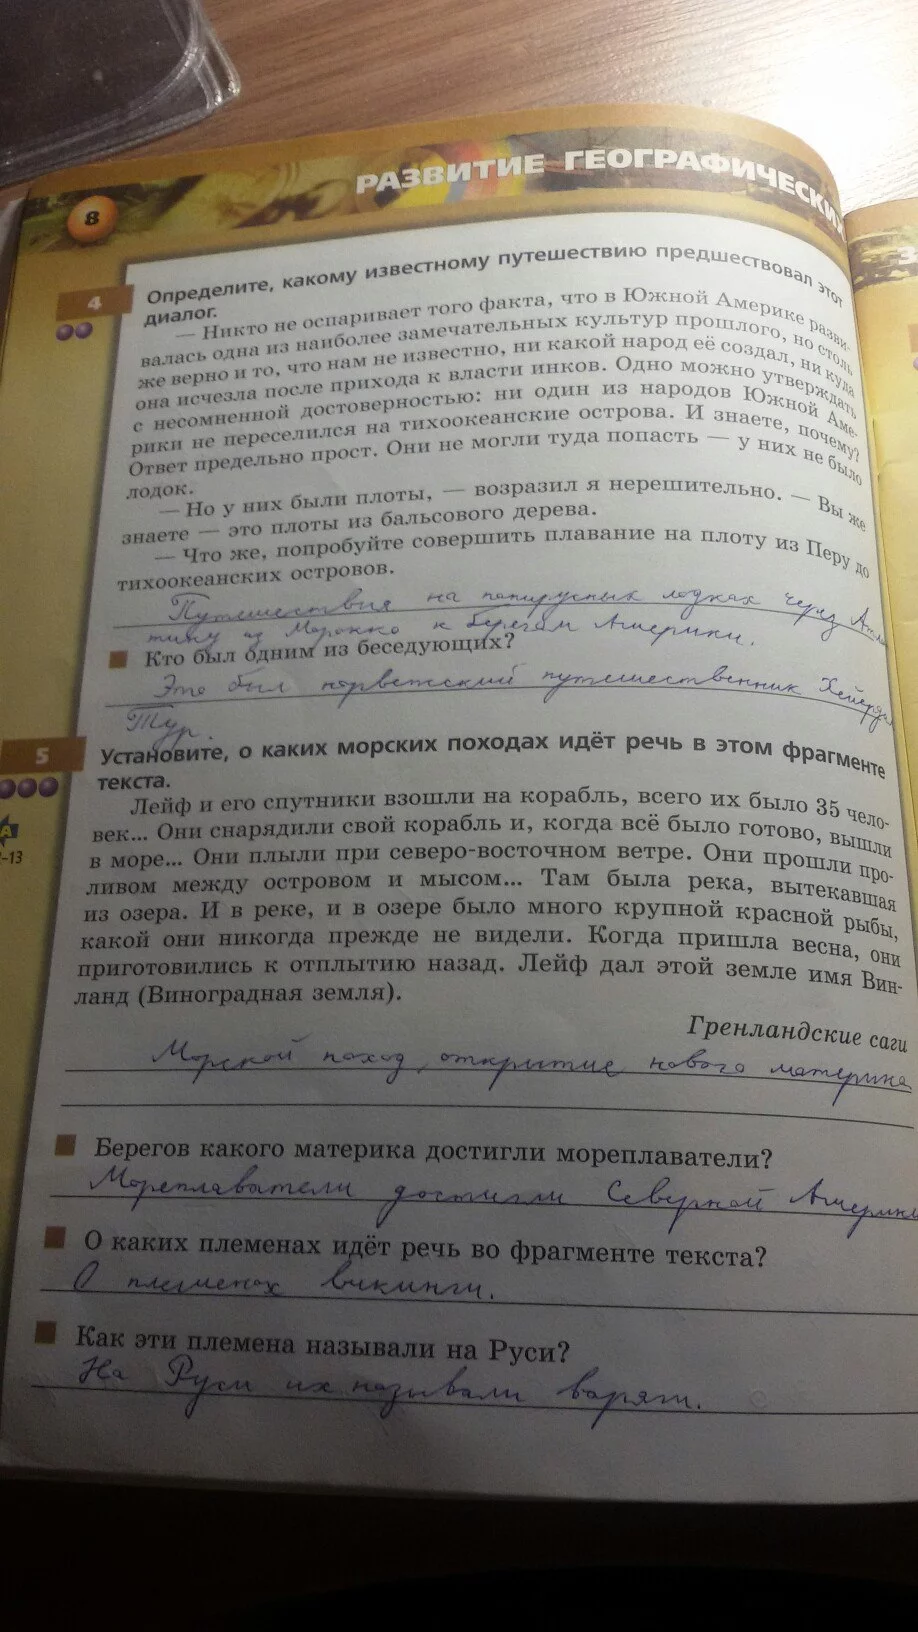 РАЗВИТИЕ ГЕОГРАФИЧЕСКИ
8
4
Определите, какому известному путешествию предшествовал этот
диалог.
— Никто не оспаривает того факта, что в Южной Америке разви-
валась одна из наиболее замечательных культур прошлого, но столь
же верно и то, что нам не известно, ни какой народ её создал, ни куда
она исчезла после прихода к власти инков. Одно можно утверждать
с несомненной достоверностью: ни один из народов Южной Аме-
рики не переселился на тихоокеанские острова. И знаете, почему?
Ответ предельно прост. Они не могли туда попасть — у них не было
лодок.
— Но у них были плоты, — возразил я нерешительно. — Вы же
знаете — это плоты из бальсового дерева.
— Что же, попробуйте совершить плавание на плоту из Перу до
тихоокеанских островов.
Путешествия на папирусных лодках через Атлан
тику из Марокко к берегам Америки.
Кто был одним из беседующих?
Это был норвежский путешественник Хейердал
Тур.
5
Установите, о каких морских походах идёт речь в этом фрагменте
текста.
Лейф и его спутники взошли на корабль, всего их было 35 чело-
век... Они снарядили свой корабль и, когда всё было готово, вышли
в море... Они плыли при северо-восточном ветре. Они прошли про-
ливом между островом и мысом... Там была река, вытекавшая
из озера. И в реке, и в озере было много крупной красной рыбы,
какой они никогда прежде не видели. Когда пришла весна, они
приготовились к отплытию назад. Лейф дал этой земле имя Вин-
ланд (Виноградная земля).
Гренландские саги
Морской поход, открытие нового материка
Берегов какого материка достигли мореплаватели?
Мореплаватели достигли Северной Америки
О каких племенах идёт речь во фрагменте текста?
О племенах викинги.
Как эти племена называли на Руси?
На Руси их называли варяги.